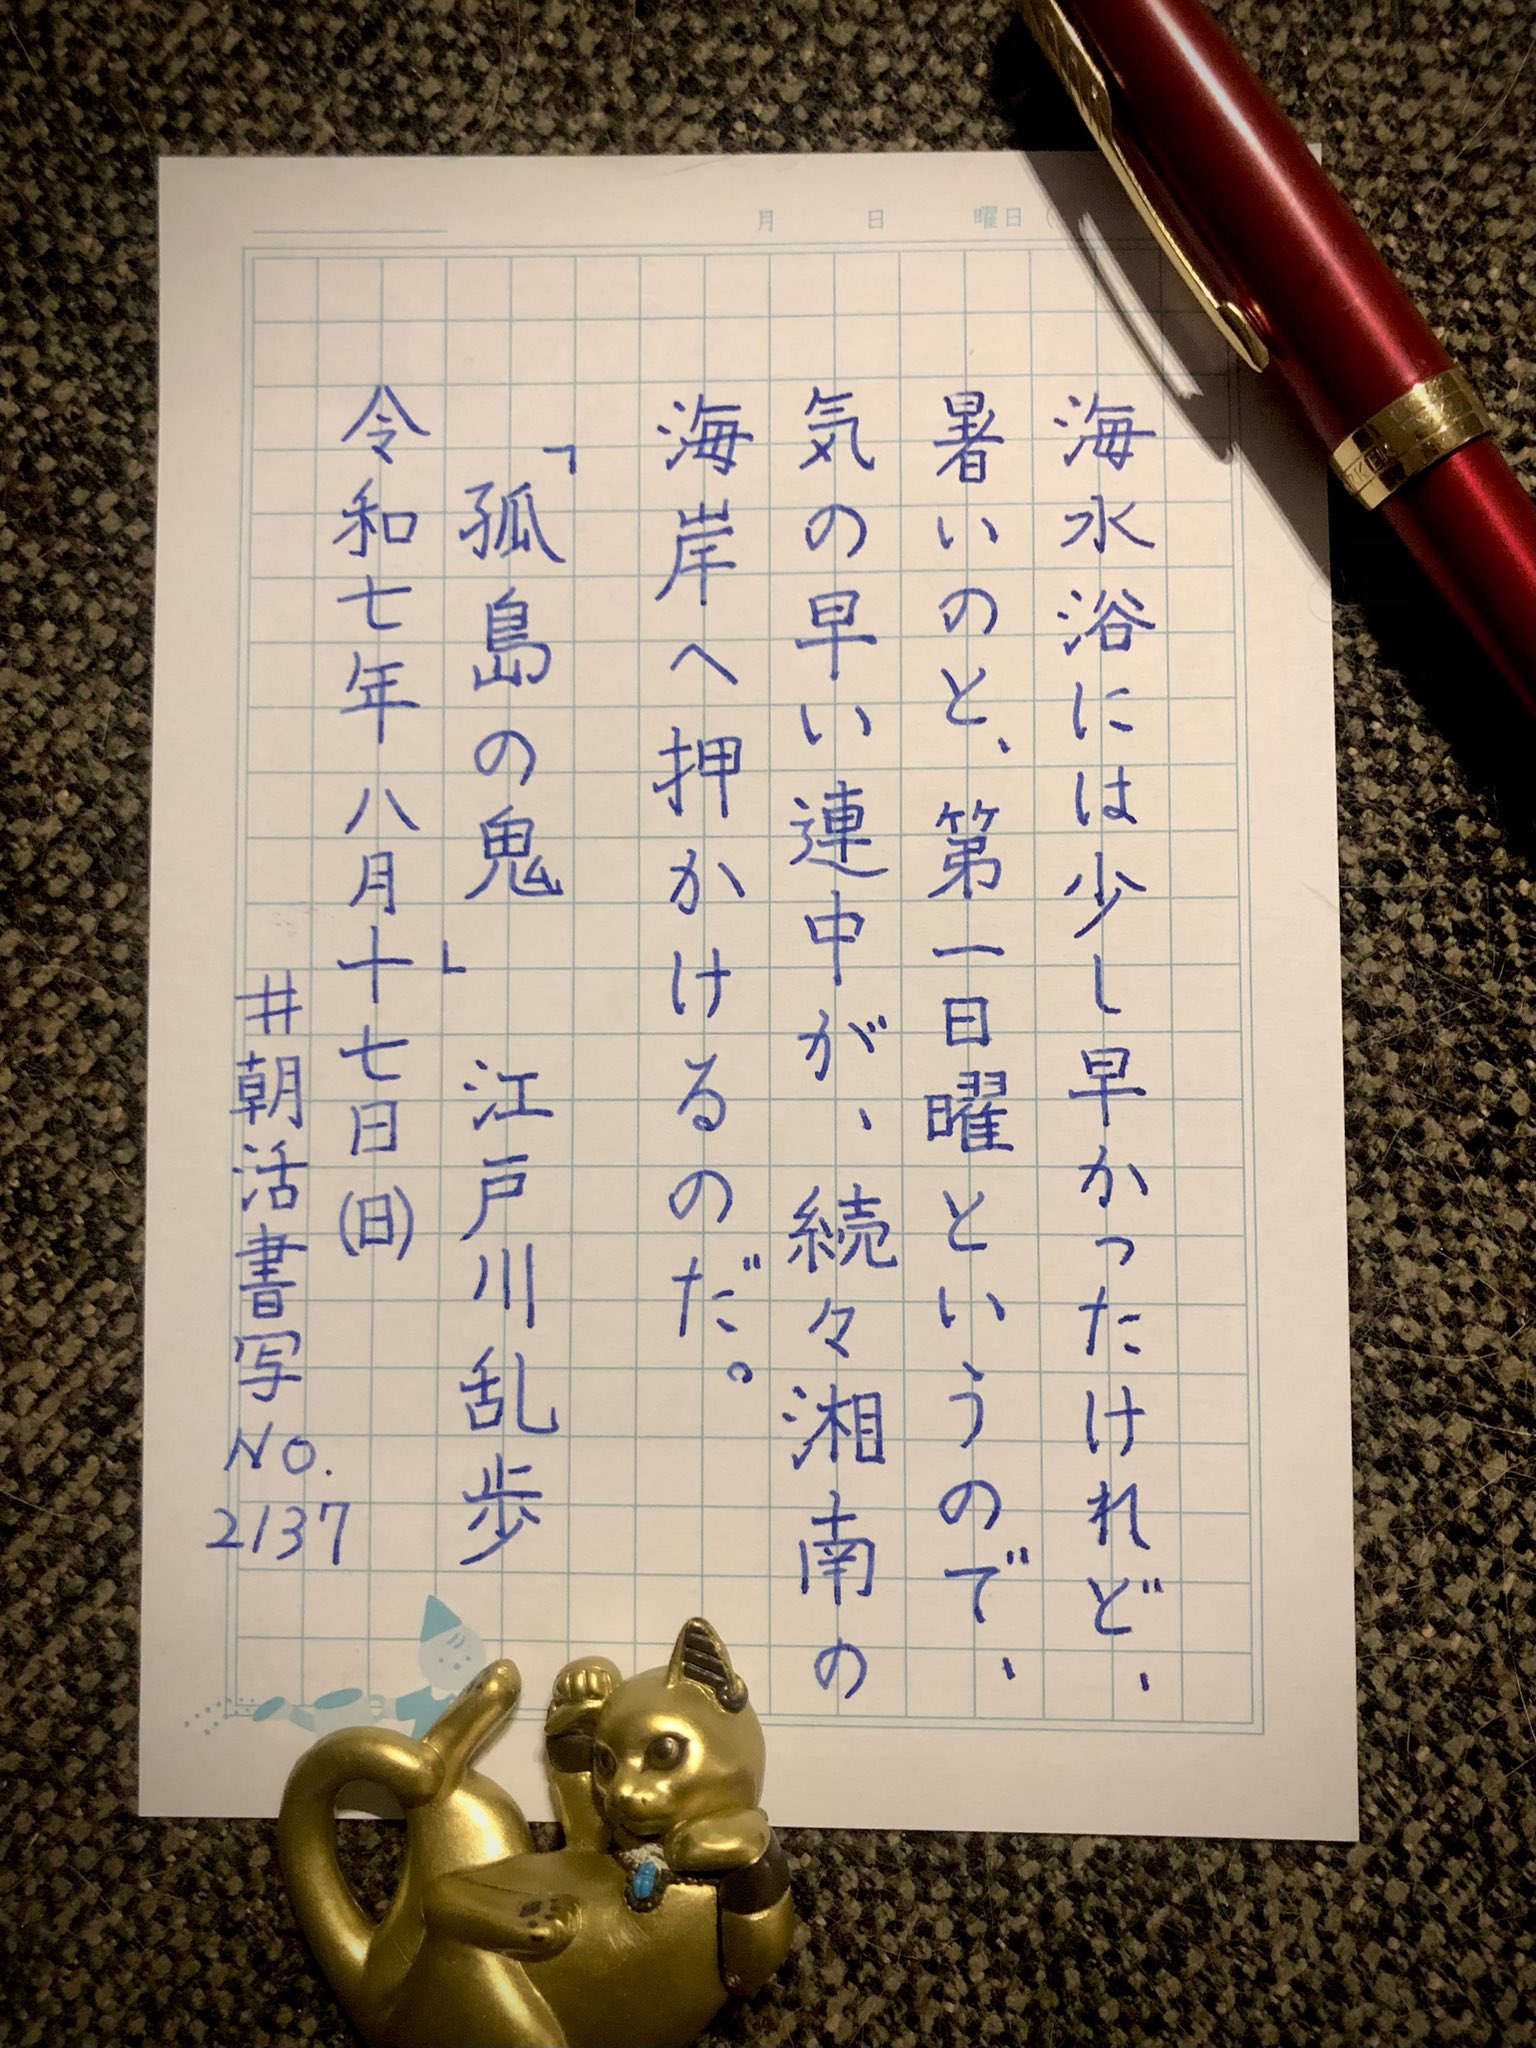 月　日　曜日（
海水浴には少し早かったけれど、
暑いのと、第一日曜というので、
気の早い連中が、続々湘南の
海岸へ押かけるのだ。
「孤島の鬼」　江戸川乱歩
令和七年八月十七日(日)
#朝活書写
No.
2137